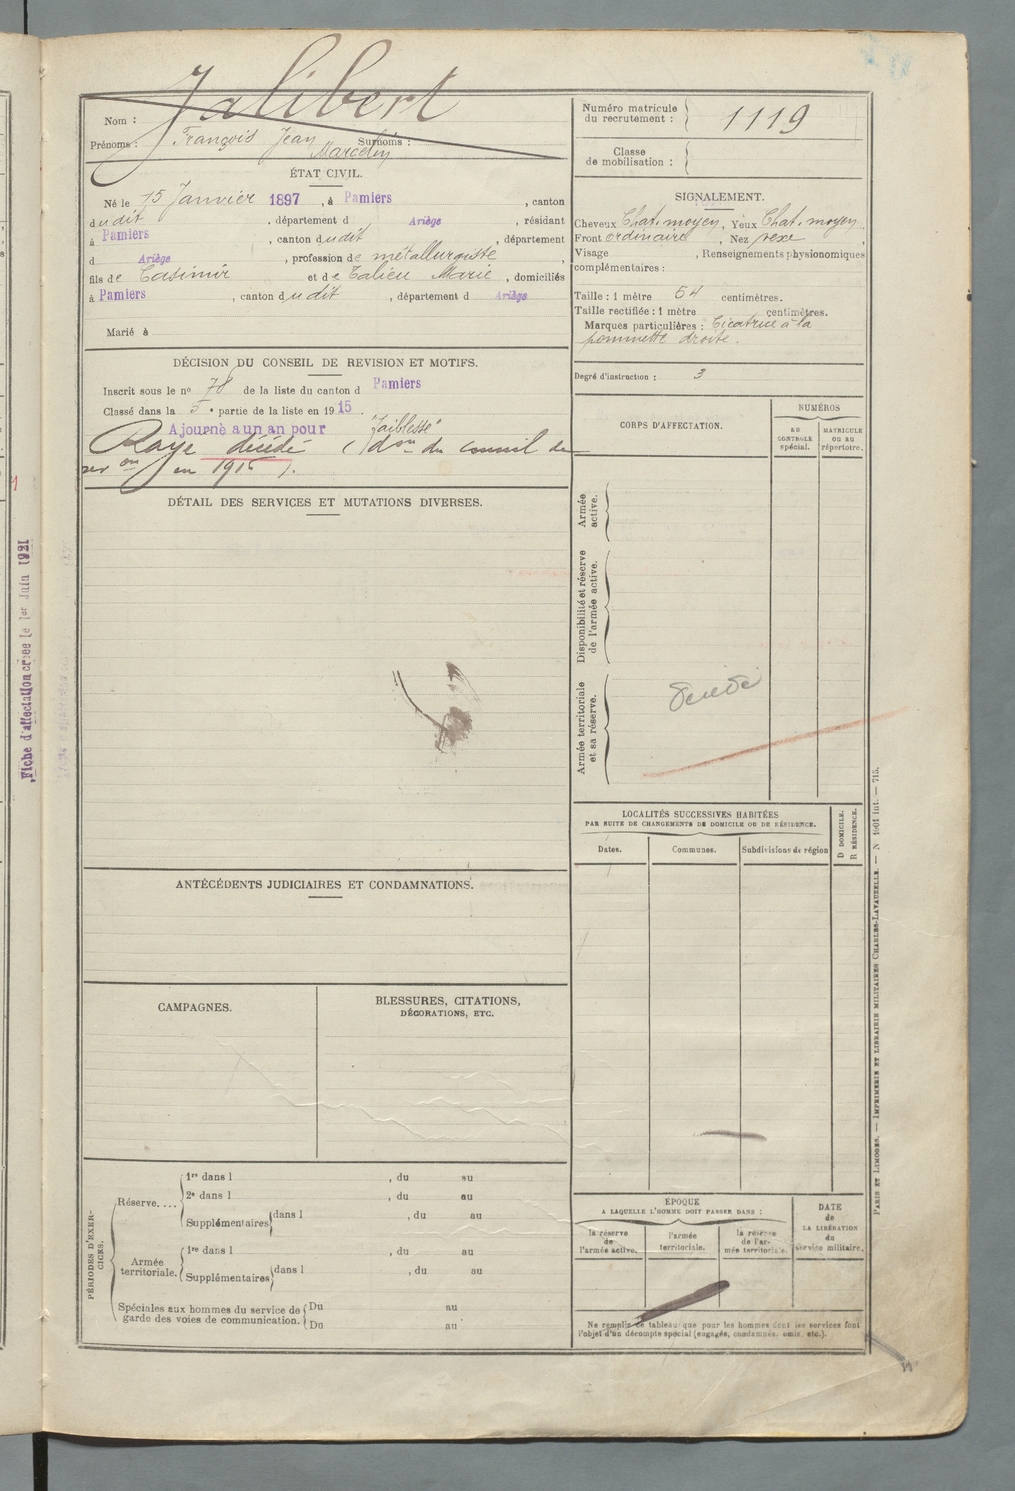 Jalibert
Nom :
Prénoms : François Jean Marcelin Surnoms :
Numéro matricule du recrutement : 1119
Classe de mobilisation :
ÉTAT CIVIL.
Né le 15 Janvier 1897, à Pamiers, canton
dudit, département d Ariège, résidant
à Pamiers, canton dudit, département
d Ariège, profession de métallurgiste,
fils de Casimir et de Talieu Marie, domiciliés
à Pamiers, canton dudit, département d Ariège
Marié à
SIGNALEMENT.
Cheveux Chat. moyen, Yeux Chat. moyen,
Front ordinaire, Nez vexe,
Visage , Renseignements physionomiques
complémentaires :
Taille : 1 mètre 54 centimètres.
Taille rectifiée : 1 mètre centimètres.
Marques particulières : Cicatrice à la
pommette droite.
Degré d'instruction : 3
DÉCISION DU CONSEIL DE REVISION ET MOTIFS.
Inscrit sous le n° 78 de la liste du canton d Pamiers
Classé dans la 5e partie de la liste en 1915.
Ajourné a un an pour faiblesse
Rayé décédé (don du conseil de
revon en 1916).
DÉTAIL DES SERVICES ET MUTATIONS DIVERSES.
CORPS D'AFFECTATION.
NUMÉROS
AU CONTROLE spécial.
MATRICULE OU AU répertoire.
Armée active.
Disponibilité et réserve de l'armée active.
Armée territoriale et sa réserve.
LOCALITÉS SUCCESSIVES HABITÉES
PAR SUITE DE CHANGEMENTS DE DOMICILE OU DE RÉSIDENCE.
Dates.
Communes.
Subdivisions de région
D DOMICILE.
R RÉSIDENCE.
ANTÉCÉDENTS JUDICIAIRES ET CONDAMNATIONS.
CAMPAGNES.
BLESSURES, CITATIONS,
DÉCORATIONS, ETC.
PÉRIODES D'EXERCICES.
Réserve....
1re dans l , du au
2e dans l , du au
Supplémentaires dans l , du au
Armée territoriale.
1re dans l , du au
Supplémentaires dans l , du au
Spéciales aux hommes du service de
garde des voies de communication.
Du au
Du au
ÉPOQUE
A LAQUELLE L'HOMME DOIT PASSER DANS :
la réserve de l'armée active.
l'armée territoriale.
la réserve de l'armée territoriale.
DATE de LA LIBÉRATION du service militaire.
Ne remplir ce tableau que pour les hommes dont les services font
l'objet d'un décompte spécial (engagés, condamnés, omis, etc.).
Fiche d'affectation créée le 1er Juin 1921
PARIS ET LIMOGES. — IMPRIMERIE ET LIBRAIRIE MILITAIRES CHARLES-LAVAUZELLE. — N° 1601 int. — 715.